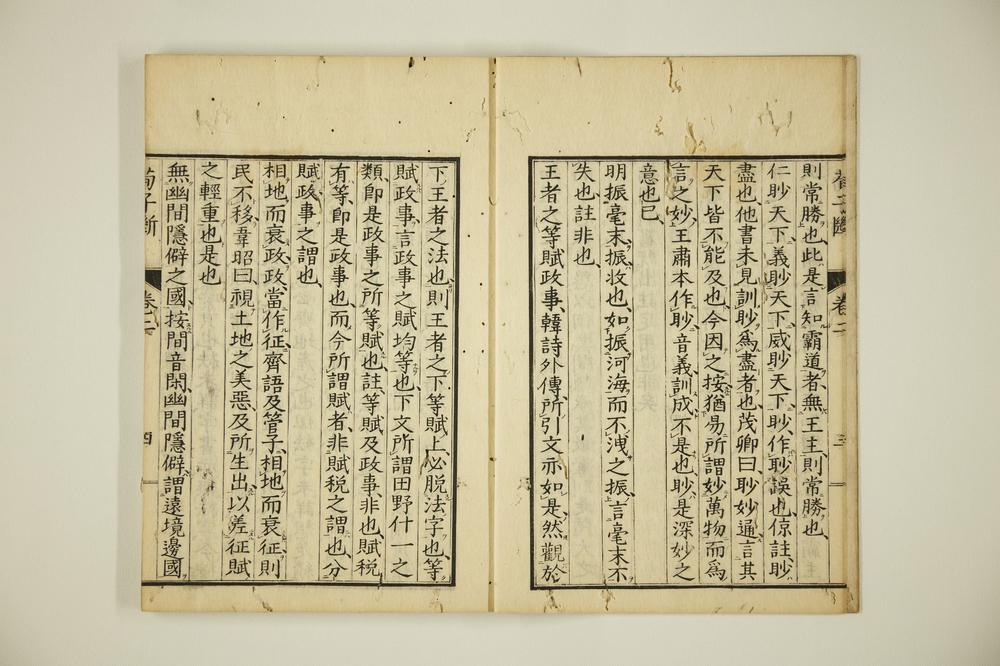 荀子斷
卷二
三
則常勝也此是言知霸道者無王主則常勝也
仁眇天下義眇天下威眇天下眇作聄誤也倞註眇
盡也他書未見訓眇爲盡者也茂卿曰眇妙通言其
天下皆不能及也今因之按猶易所謂妙萬物而爲
言之妙王肅本作眇音義訓成不是也眇是深妙之
意也已
明振毫末振收也如振河海而不洩之振言毫末不
失也註非也
王者之等賦政事韓詩外傳所引文亦如是然觀於
下王者之法也則王者之下等賦上必脱法字也等
賦政事言政事之賦均等也下文所謂田野什一之
類即是政事之所等賦也註等賦及政事非也賦税
有等即是政事也而今所謂賦者非賦税之謂也分
賦政事之謂也
相地而衰政政當作征齊語及管子相地而衰征則
民不移韋昭曰視土地之美惡及所生出以差征賦
之輕重也是也
無幽間隱僻之國按間音閑幽間隱僻謂遠境邊國
荀子斷
卷二
四